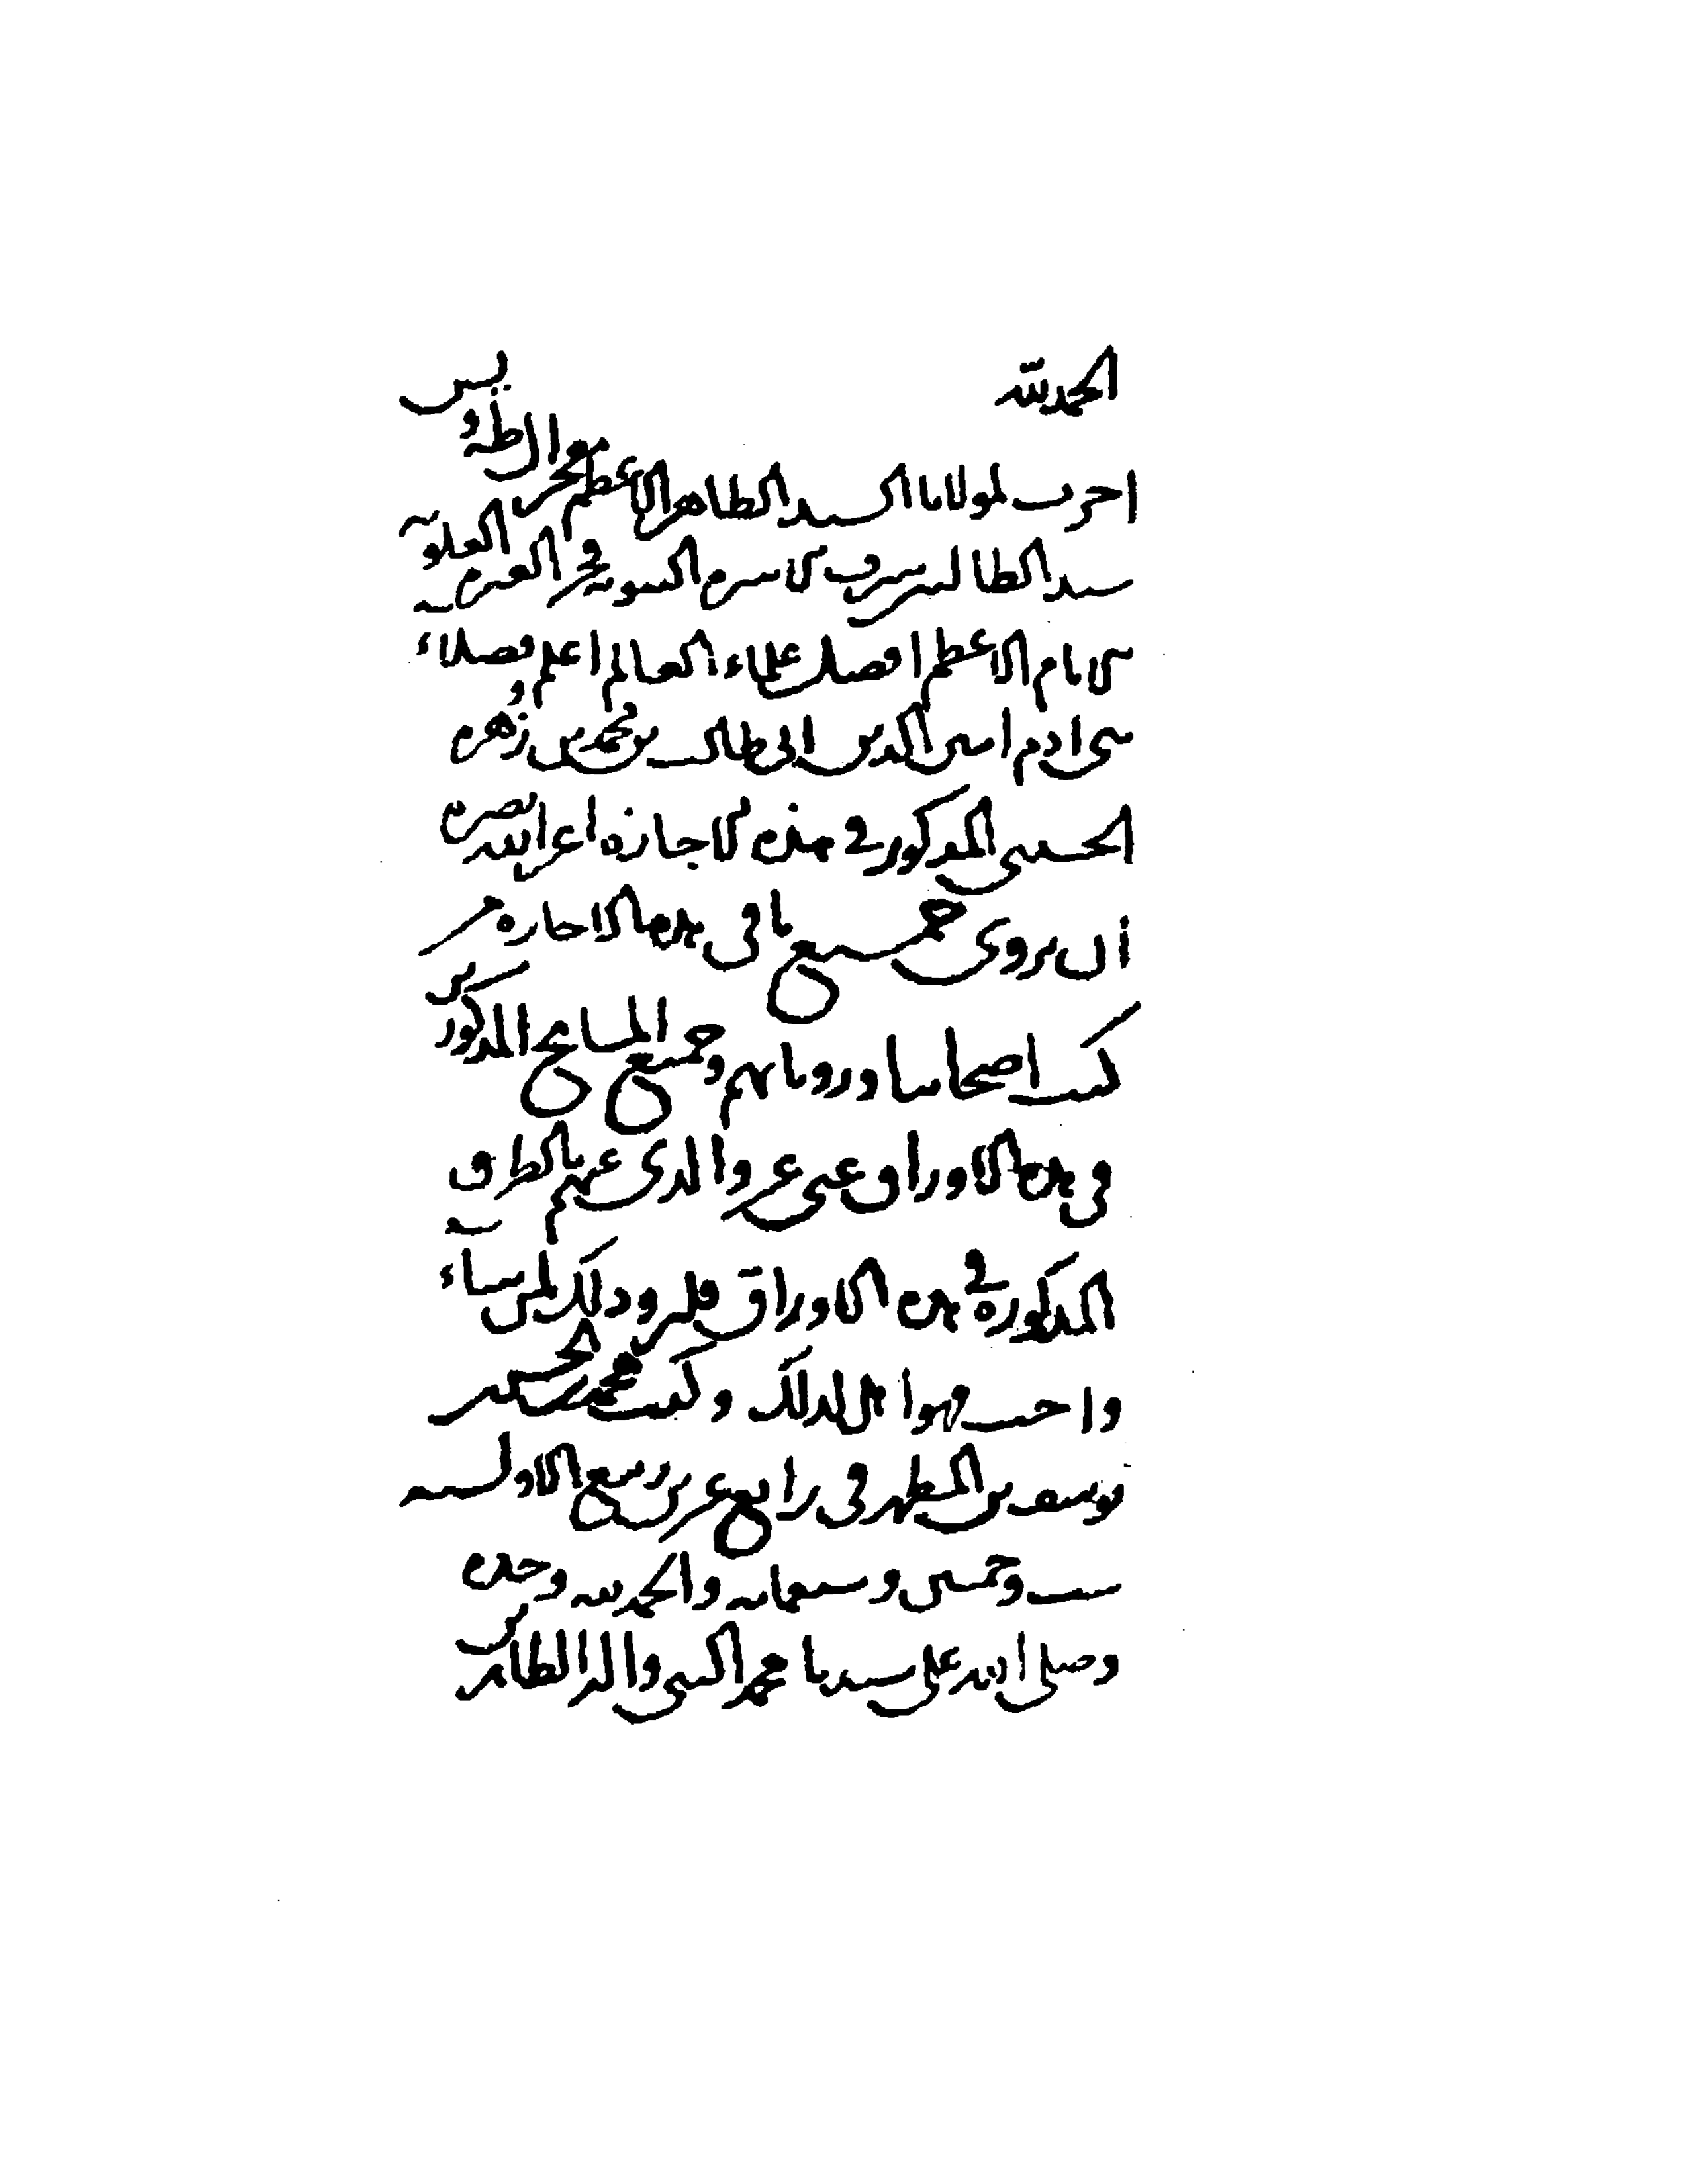 الحمد لله
اجزت لمولانا السيد الطاهر الاعظم فخر ال طه و يس
سيد الطالبيين شرف الاسرة النبوية فخر العترة العلوية
الامام الاعظم افضل علماء العالم اعلم فضلاء
بني ادم امين الدين ابي طالب بن محمد بن زهرة
الحسيني المذكور في هذه الاجازة اعز الله نصره
ان يروى جميع ما في هذه الاجازة من
كتب اصحابنا ورواياتهم وجميع المشايخ المذكورين
في هذه الاوراق عني عن والدي عنهم بالطرق
المذكورة في هذه الاوراق فليرو ذلك لمن شاء
واحب فهو اهل لذلك وكتب محمد بن الحسن بن
يوسف بن المطهر في رابع عشر ربيع الاول سنة
ست وخمسين وسبعمائة والحمد لله وحده
وصلى الله على سيدنا محمد النبي واله الطاهرين